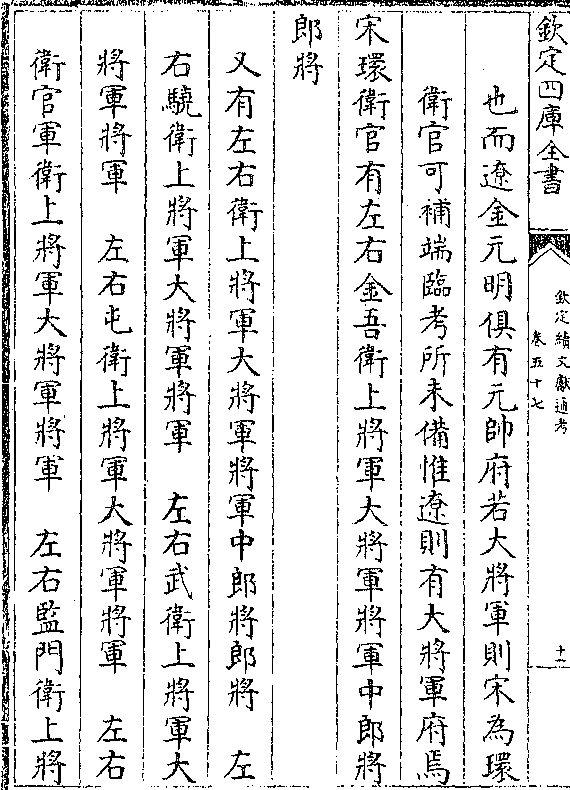 欽定四庫全書
欽定續文獻通考
卷五十七
十一
也而遼金元明俱有元帥府若大將軍則宋為環
衛官可補端臨考所未備惟遼則有大將軍府焉
宋環衛官有左右金吾衛上將軍大將軍將軍中郎將
郎將
又有左右衛上將軍大將軍將軍中郎將郎將　左
右驍衛上將軍大將軍將軍　左右武衛上將軍大
將軍將軍　左右屯衛上將軍大將軍將軍　左右
衛官軍衛上將軍大將軍將軍　左右監門衛上將